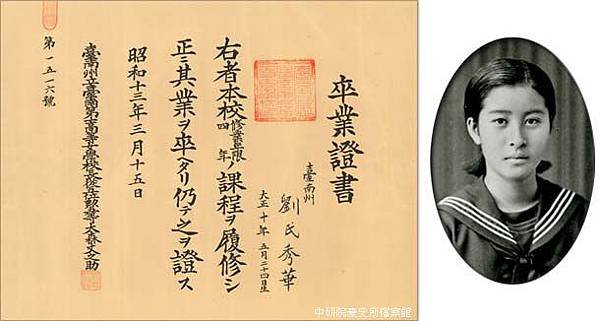 卒業證書
臺南州
劉氏秀華
大正十年五月二十四日生
右者本校修業年限四年ノ課程ヲ履修シ
正ニ其業ヲ卒ヘタリ仍テ之ヲ證ス
昭和十三年三月十五日
臺南州立臺南第高等女學校長之助
第一五一六號
中研院臺史所檔案館